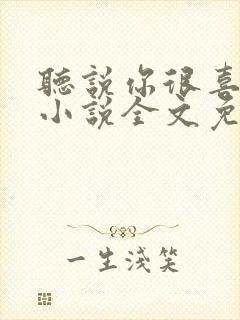 聽說你很喜
小說全文免
一生淺笑